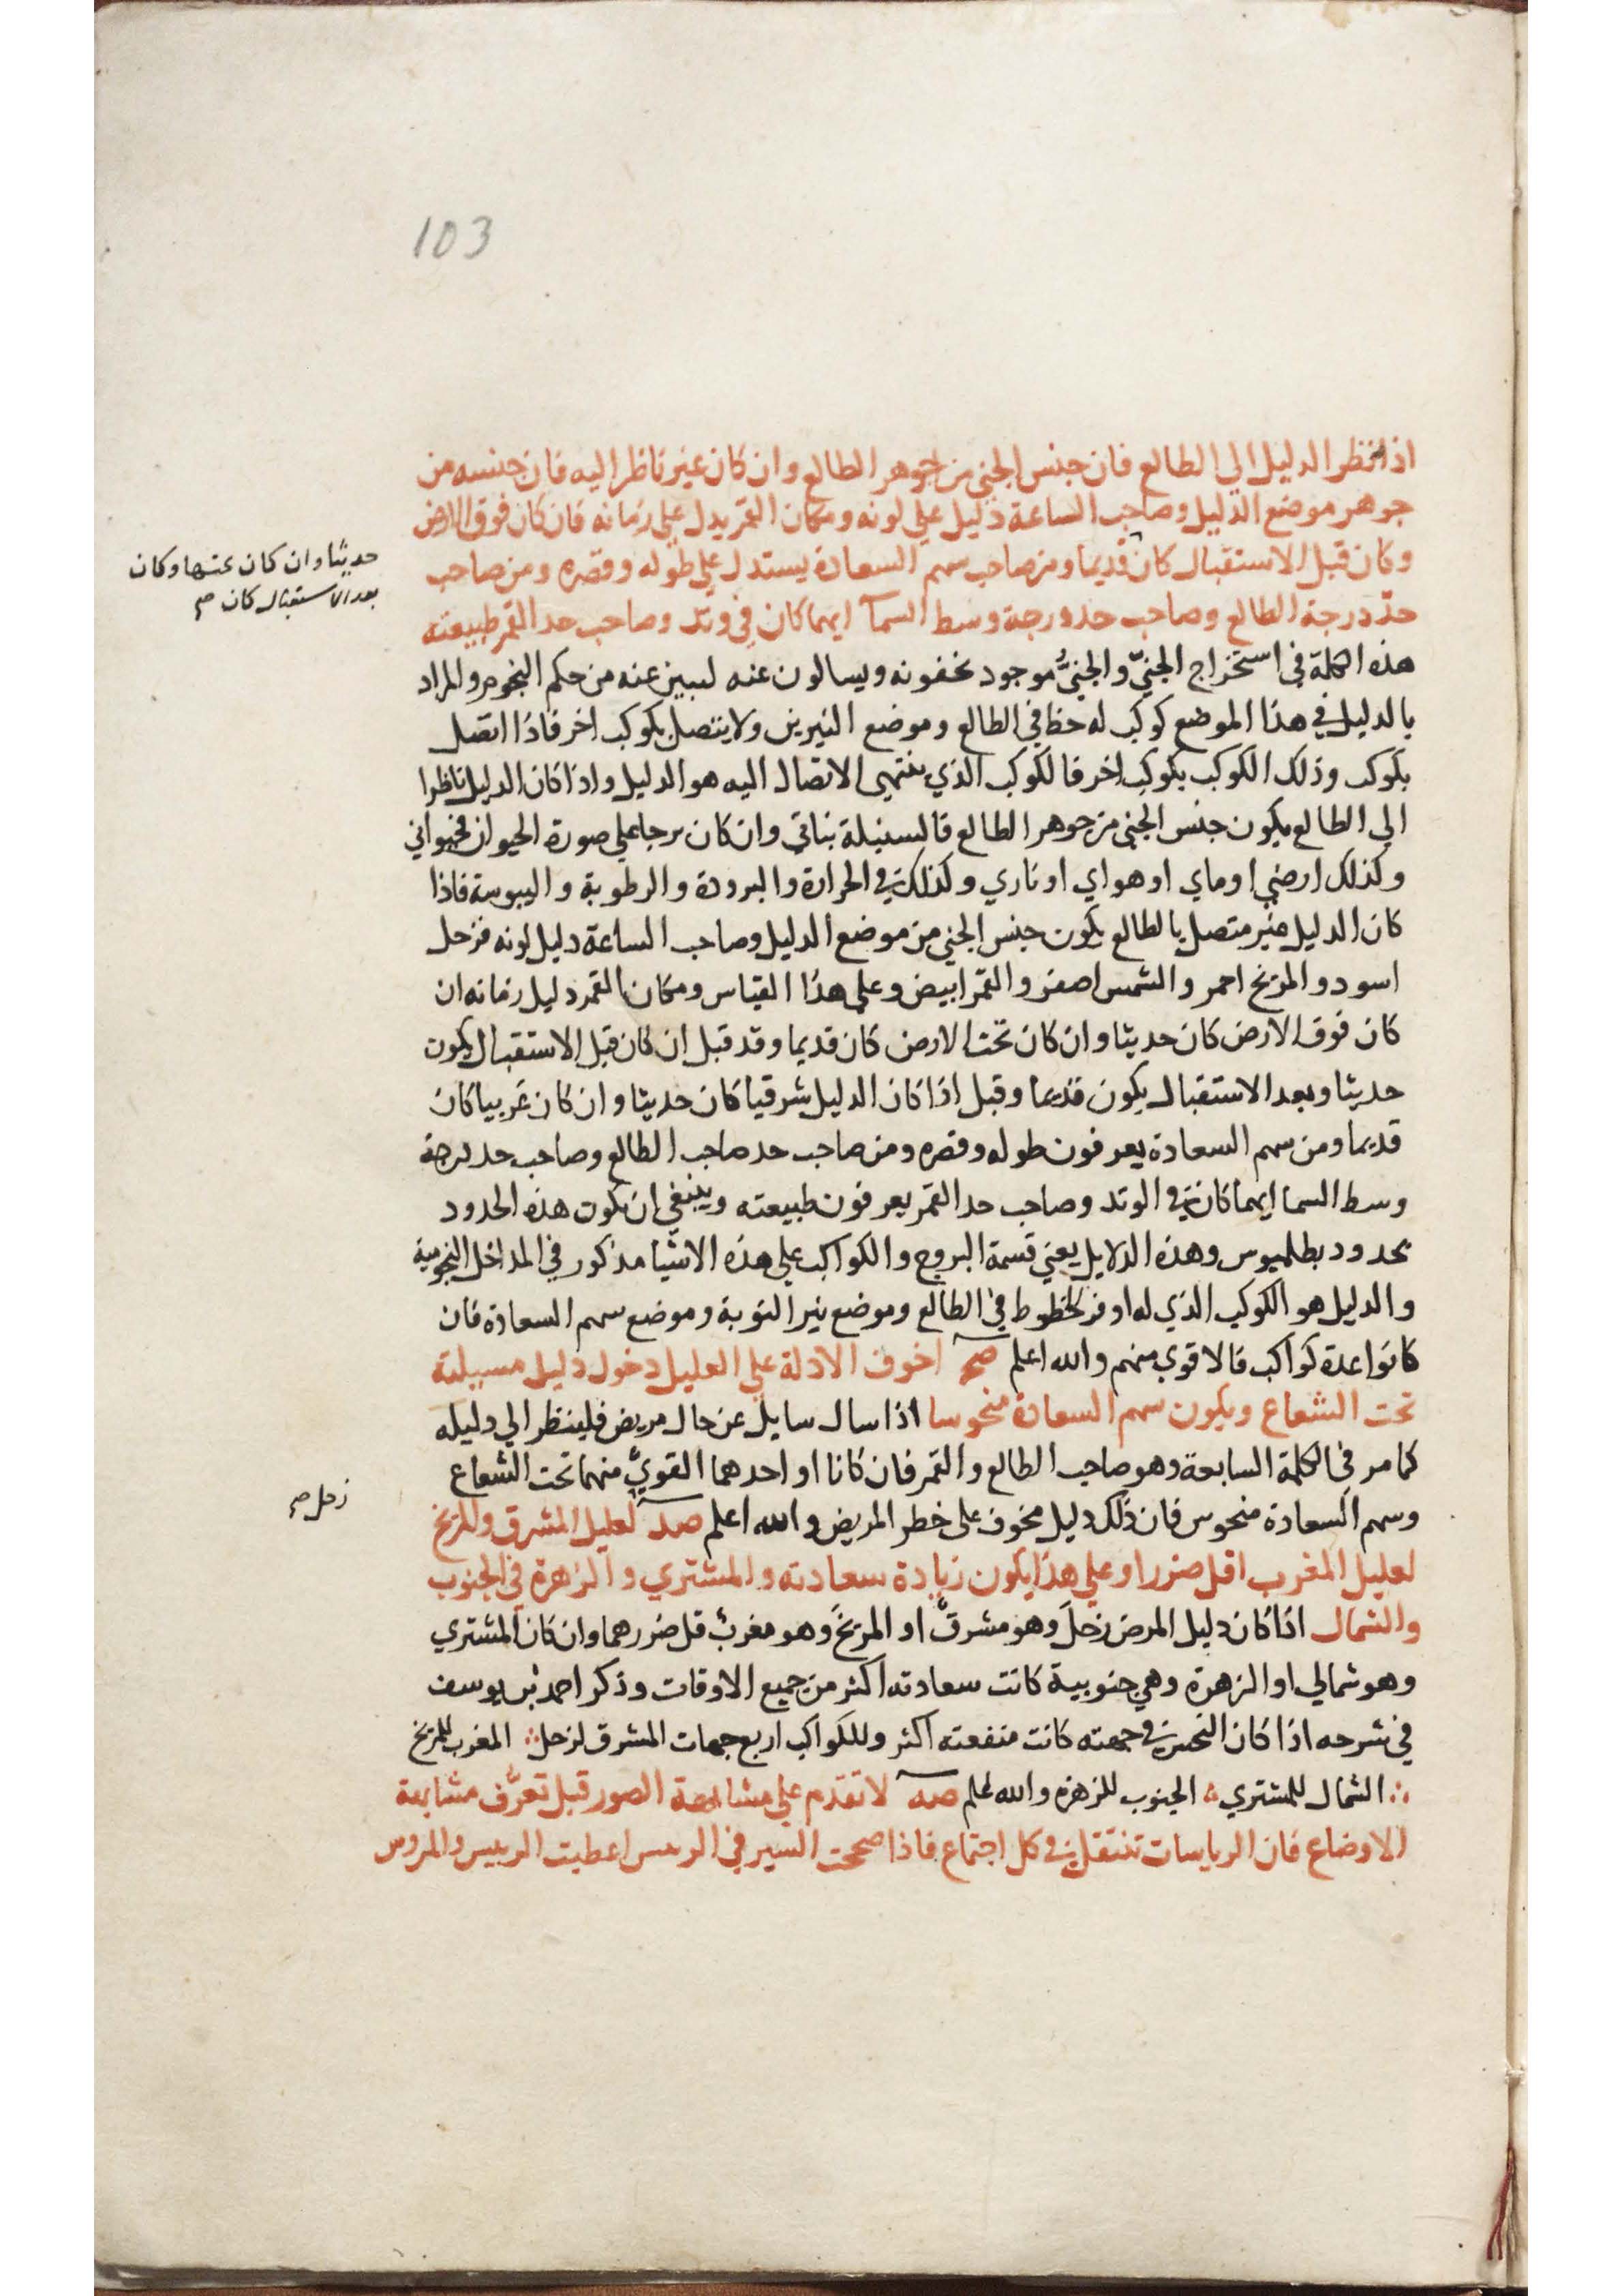 103
اذا نظر الدليل الي الطالع فان جنس الجني من جوهر الطالع وان كان غير ناظر اليه فان جنسه من
جوهر موضع الدليل وصاحب الساعة دليل علي لونه ومكان القمر يدل علي زمانه فان كان فوق الارض
وكان قبل الاستقبال كان قديما ومن صاحب سهم السعادة يستدل علي طوله وقصره ومن صاحب
حديثا وان كان تحتها وكان
بعد الاستقبال كان صح
حد درجة الطالع وصاحب حد درجة وسط السما ايهما كان في وتد وصاحب حد القمر طبيعته
هذه الكلمة في استخراج الجنيّ والجنيُّ موجود يخفونه ويسالون عنه ليبين عنه من حكم النجوم والمراد
بالدليل في هذا الموضع كوكب له حظ في الطالع وموضع النيرين ولا يتصل بكوكب اخر فاذا اتصل
بكوكب وذلك الكوكب بكوكب اخر فالكوكب الذي ينتهي الاتصال اليه هو الدليل واذا كان الدليل ناظرا
الي الطالع يكون جنس الجني من جوهر الطالع فالسنبلة نباتي وان كان برجا علي صورة الحيوان فحيواني
وكذلك ارضي اوماي او هواي او ناري وكذلك في الحرارة والبرودة والرطوبة واليبوسة فاذا
كان الدليل غير متصل بالطالع يكون جنس الجني من موضع الدليل وصاحب الساعة دليل لونه فزحل
اسود والمريخ احمر والشمس اصفر والقمر ابيض وعلي هذا القياس ومكان القمر دليل زمانه ان
كان فوق الارض كان حديثا وان كان تحت الارض كان قديما وقد قيل ان كان قبل الاستقبال يكون
حديثا وبعد الاستقبال يكون قديما وقيل اذا كان الدليل شرقيا كان حديثا وان كان غربيا كان
قديما ومن سهم السعادة يعرفون طوله وقصره ومن صاحب حد صاحب الطالع وصاحب حد درجة
وسط السما ايهما كان في الوتد وصاحب حد القمر يعرفون طبيعته وينبغي ان تكون هذه الحدود
بحدود بطلميوس وهذه الدلايل يعني قسمة البروج والكواكب علي هذه الاشيا مذكور في المداخل النجومية
والدليل هو الكوكب الذي له اوفر الحظوظ في الطالع وموضع نير النوبة وموضع سهم السعادة فان
كانوا عدة كواكب فالاقوي منهم والله اعلم صح اخوف الادلة علي العليل دخول دليل مسيلته
تحت الشعاع ويكون سهم السعادة منحوسا اذا سال سايل عن حال مريض فلينظر الي دليله
كما مر في الكلمة السابعة وهو صاحب الطالع والقمر فان كانا او احدهما القويُّ منهما تحت الشعاع
وسهم السعادة منحوس فان ذلك دليل مخوف علي خطر المريض والله اعلم صد لعليل المشرق والمريخ
زحل صح
لعليل المغرب اقل ضررا وعلي هذا يكون زيادة سعادته والمشتري والزهرة في الجنوب
والشمال اذا كان دليل المرض زحلَ وهو مشرقٌ او المريخَ وهو مغربٌ قل ضررهما وان كان المشتري
وهو شمالي او الزهرة وهي جنوبية كانت سعادته اكثر من جميع الاوقات وذكر احمد بن يوسف
في شرحه اذا كان النحس في جهته كانت منفعته اكثر وللكواكب اربع جهات المشرق لزحل ∴ المغرب للمريخ
∴ الشمال للمشتري ∴ الجنوب للزهرة والله اعلم صه لا تقدم علي مشابهة الصور قبل تعرّف مشابهة
الاوضاع فان الرياسات تنتقل في كل اجتماع فاذا صححت السير في اعطيت الرييس والمروس